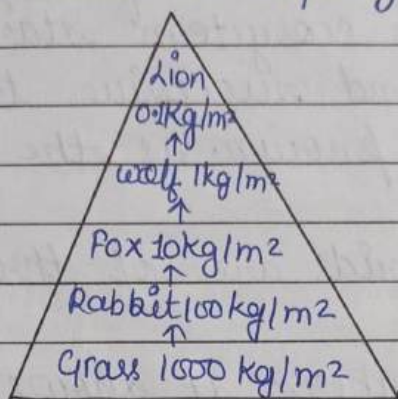 Lion
0.1kg/m²
↑
wolf 1kg/m²
↑
Fox 10kg/m²
↑
Rabbit 100 kg/m²
↑
Grass 1000 kg/m²